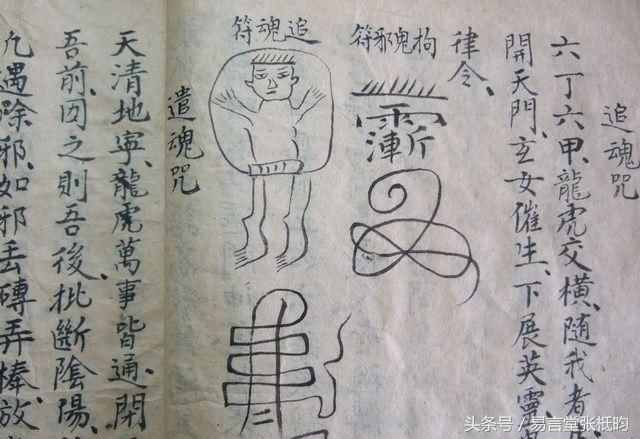 追魂咒
六丁六甲、龍虎交橫、隨我者
開天門、玄女催生、下展英靈
律令、
拘鬼邪符
追魂符
遣魂咒
天清地寧、龍虎萬事皆通、閉
吾前、因之則吾後、批斷陰陽、
凡遇除邪、如邪丟磚弄棒、放
头条号 / 易言堂张柢昀